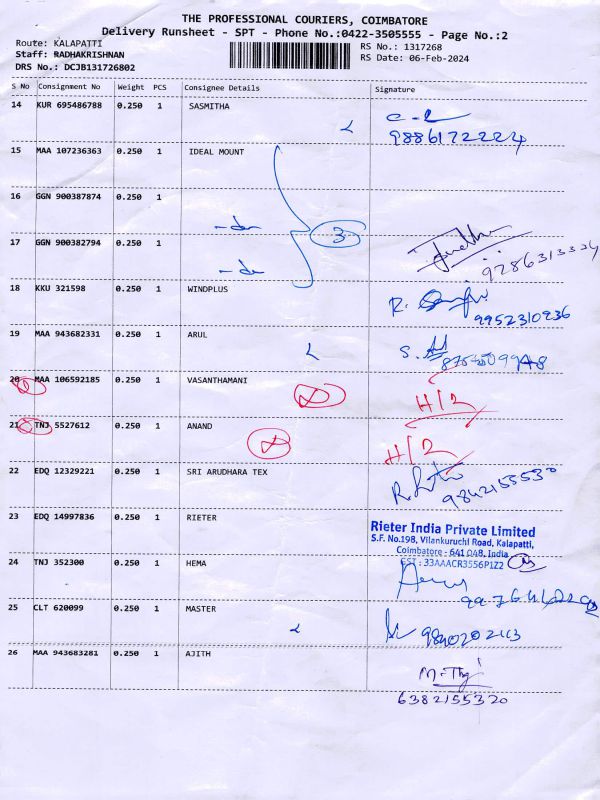 THE PROFESSIONAL COURIERS, COIMBATORE
Delivery Runsheet - SPT - Phone No.:0422-3505555 - Page No.:2
Route: KALAPATTI
Staff: RADHAKRISHNAN
DRS No.: DCJB131726802
RS No.: 1317268
RS Date: 06-Feb-2024
S No Consignment No Weight PCS Consignee Details Signature
14 KUR 695486788 0.250 1 SASMITHA
9886172224
15 MAA 107236363 0.250 1 IDEAL MOUNT
16 GGN 900387874 0.250 1
-do-
3
17 GGN 900382794 0.250 1
-do-
9286313334
18 KKU 321598 0.250 1 WINDPLUS
R.
9952310936
19 MAA 943682331 0.250 1 ARUL
S.
20 MAA 106592185 0.250 1 VASANTHAMANI
H/2
21 TNJ 5527612 0.250 1 ANAND
H/2
22 EDQ 12329221 0.250 1 SRI ARUDHARA TEX
9842155530
23 EDQ 14997836 0.250 1 RIETER
Rieter India Private Limited
S.F. No.198, Vilankuruchi Road, Kalapatti,
Coimbatore - 641 048. India
GST : 33AAACR3556P1Z2
24 TNJ 352300 0.250 1 HEMA
25 CLT 620099 0.250 1 MASTER
9840202113
26 MAA 943683281 0.250 1 AJITH
6382155320